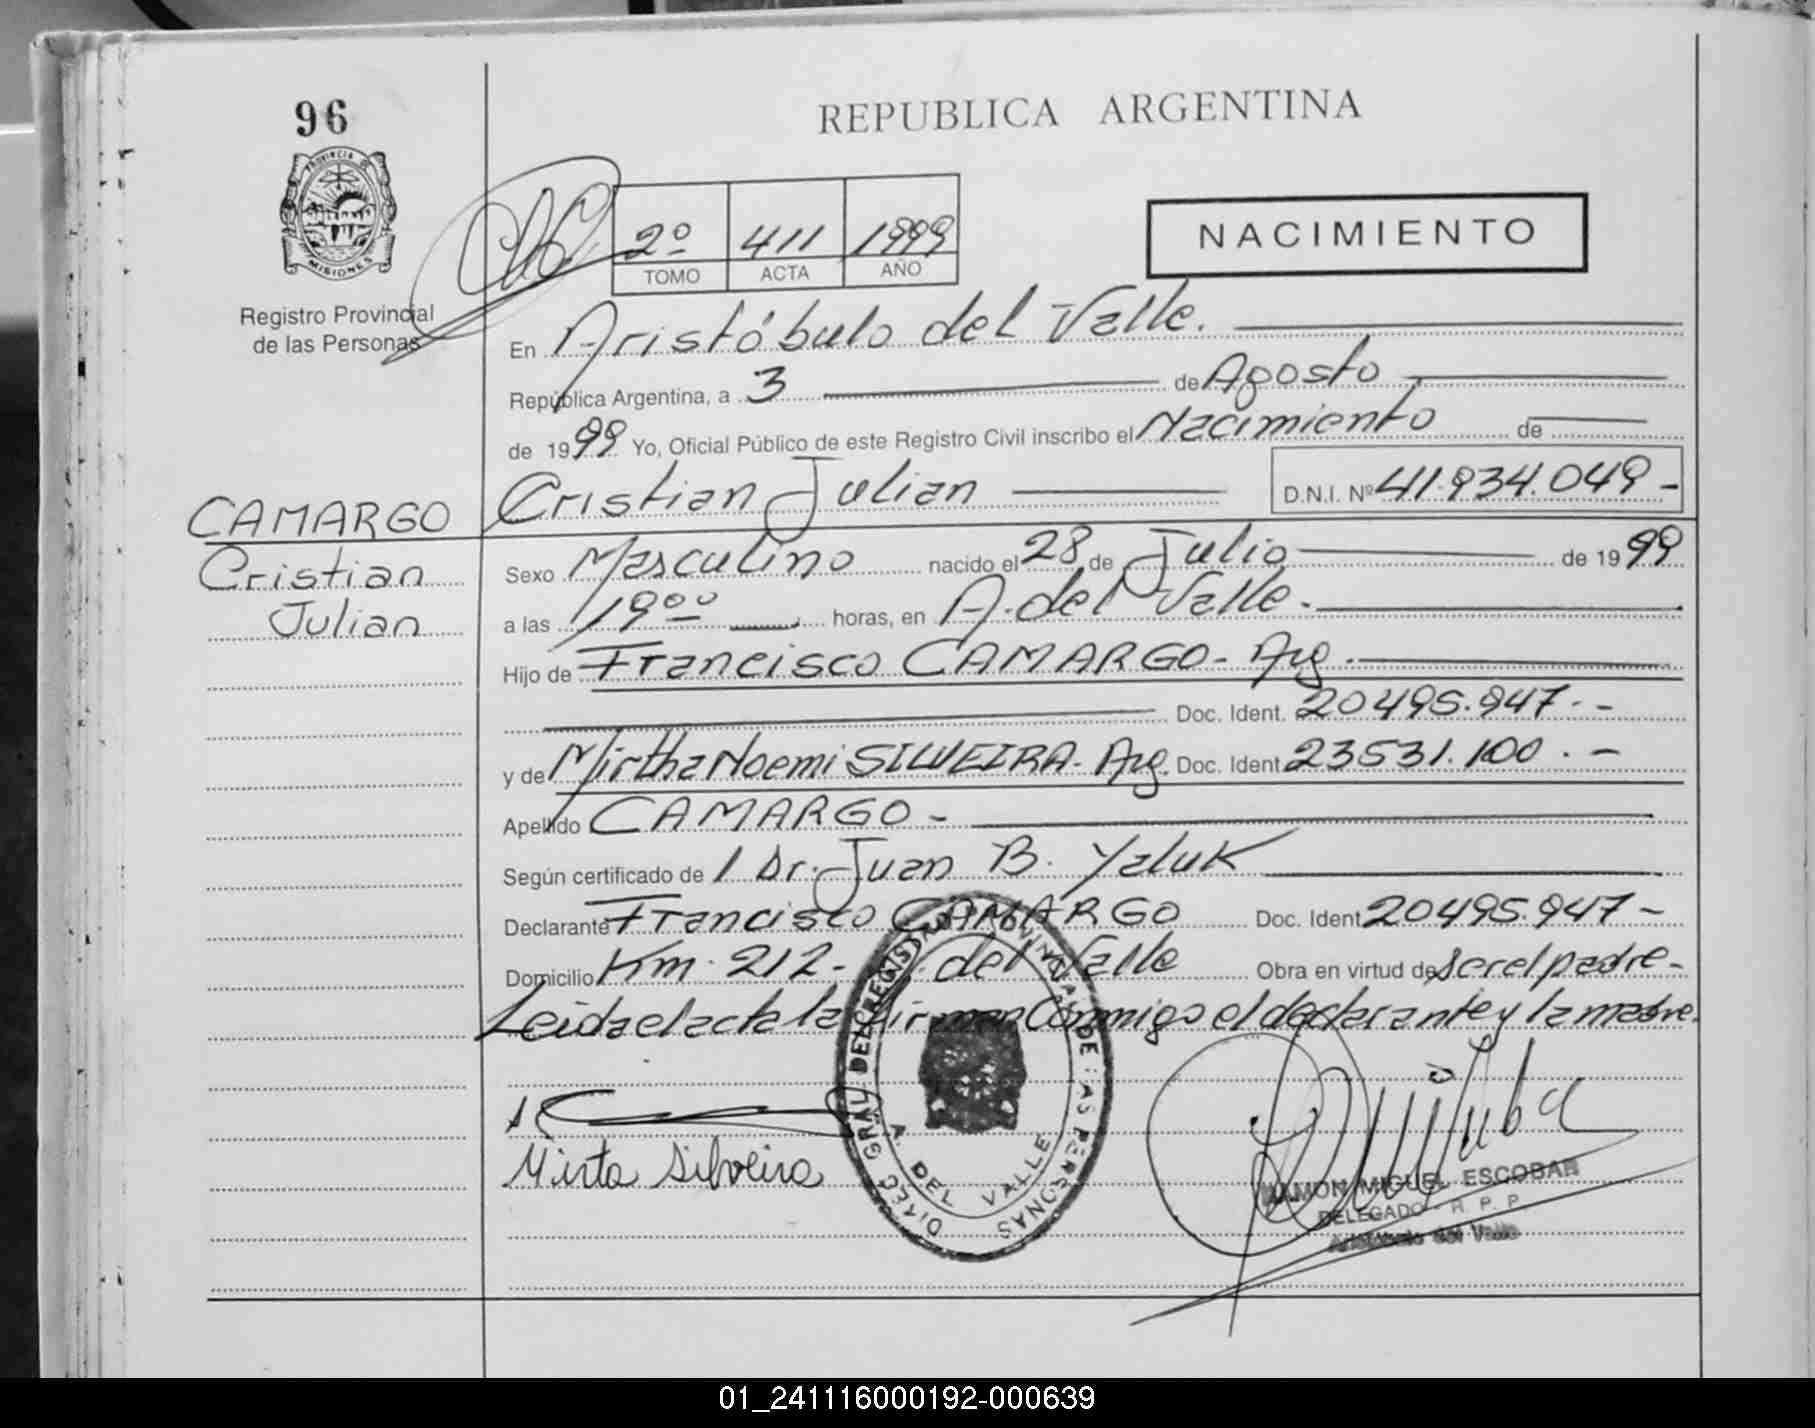 96
REPUBLICA ARGENTINA
PROVINCIA DE
MISIONES
Registro Provincial
de las Personas
2º 411 1999
TOMO ACTA AÑO
NACIMIENTO
En Aristóbulo del Valle.
República Argentina, a 3 de Agosto
de 1999 Yo, Oficial Público de este Registro Civil inscribo el Nacimiento de
Cristian Julian D.N.I. Nº 41.934.049-
CAMARGO
Cristian
Julian
Sexo Masculino nacido el 28 de Julio de 1999
a las 19 ºº horas, en A. del Valle.
Hijo de Francisco CAMARGO- Arg.
Doc. Ident. 20495.947.-
y de Mirtha Noemi SILVEIRA- Arg. Doc. Ident 23531.100.-
Apellido CAMARGO-
Según certificado de 1 Dr. Juan B. Yaluk
Declarante Francisco CAMARGO Doc. Ident 20495.947-
Domicilio Km. 212- A. del Valle Obra en virtud de ser el padre-
Leida el acta la firman Conmigo el declarante y la madre.
Mirta Silveira
DIREC GRAL DEL REGISTRO PROVINCIAL DE LAS PERSONAS
A. DEL VALLE
RAMON MIGUEL ESCOBAR
DELEGADO - R. P. P.
Aristóbulo del Valle
01_241116000192-000639